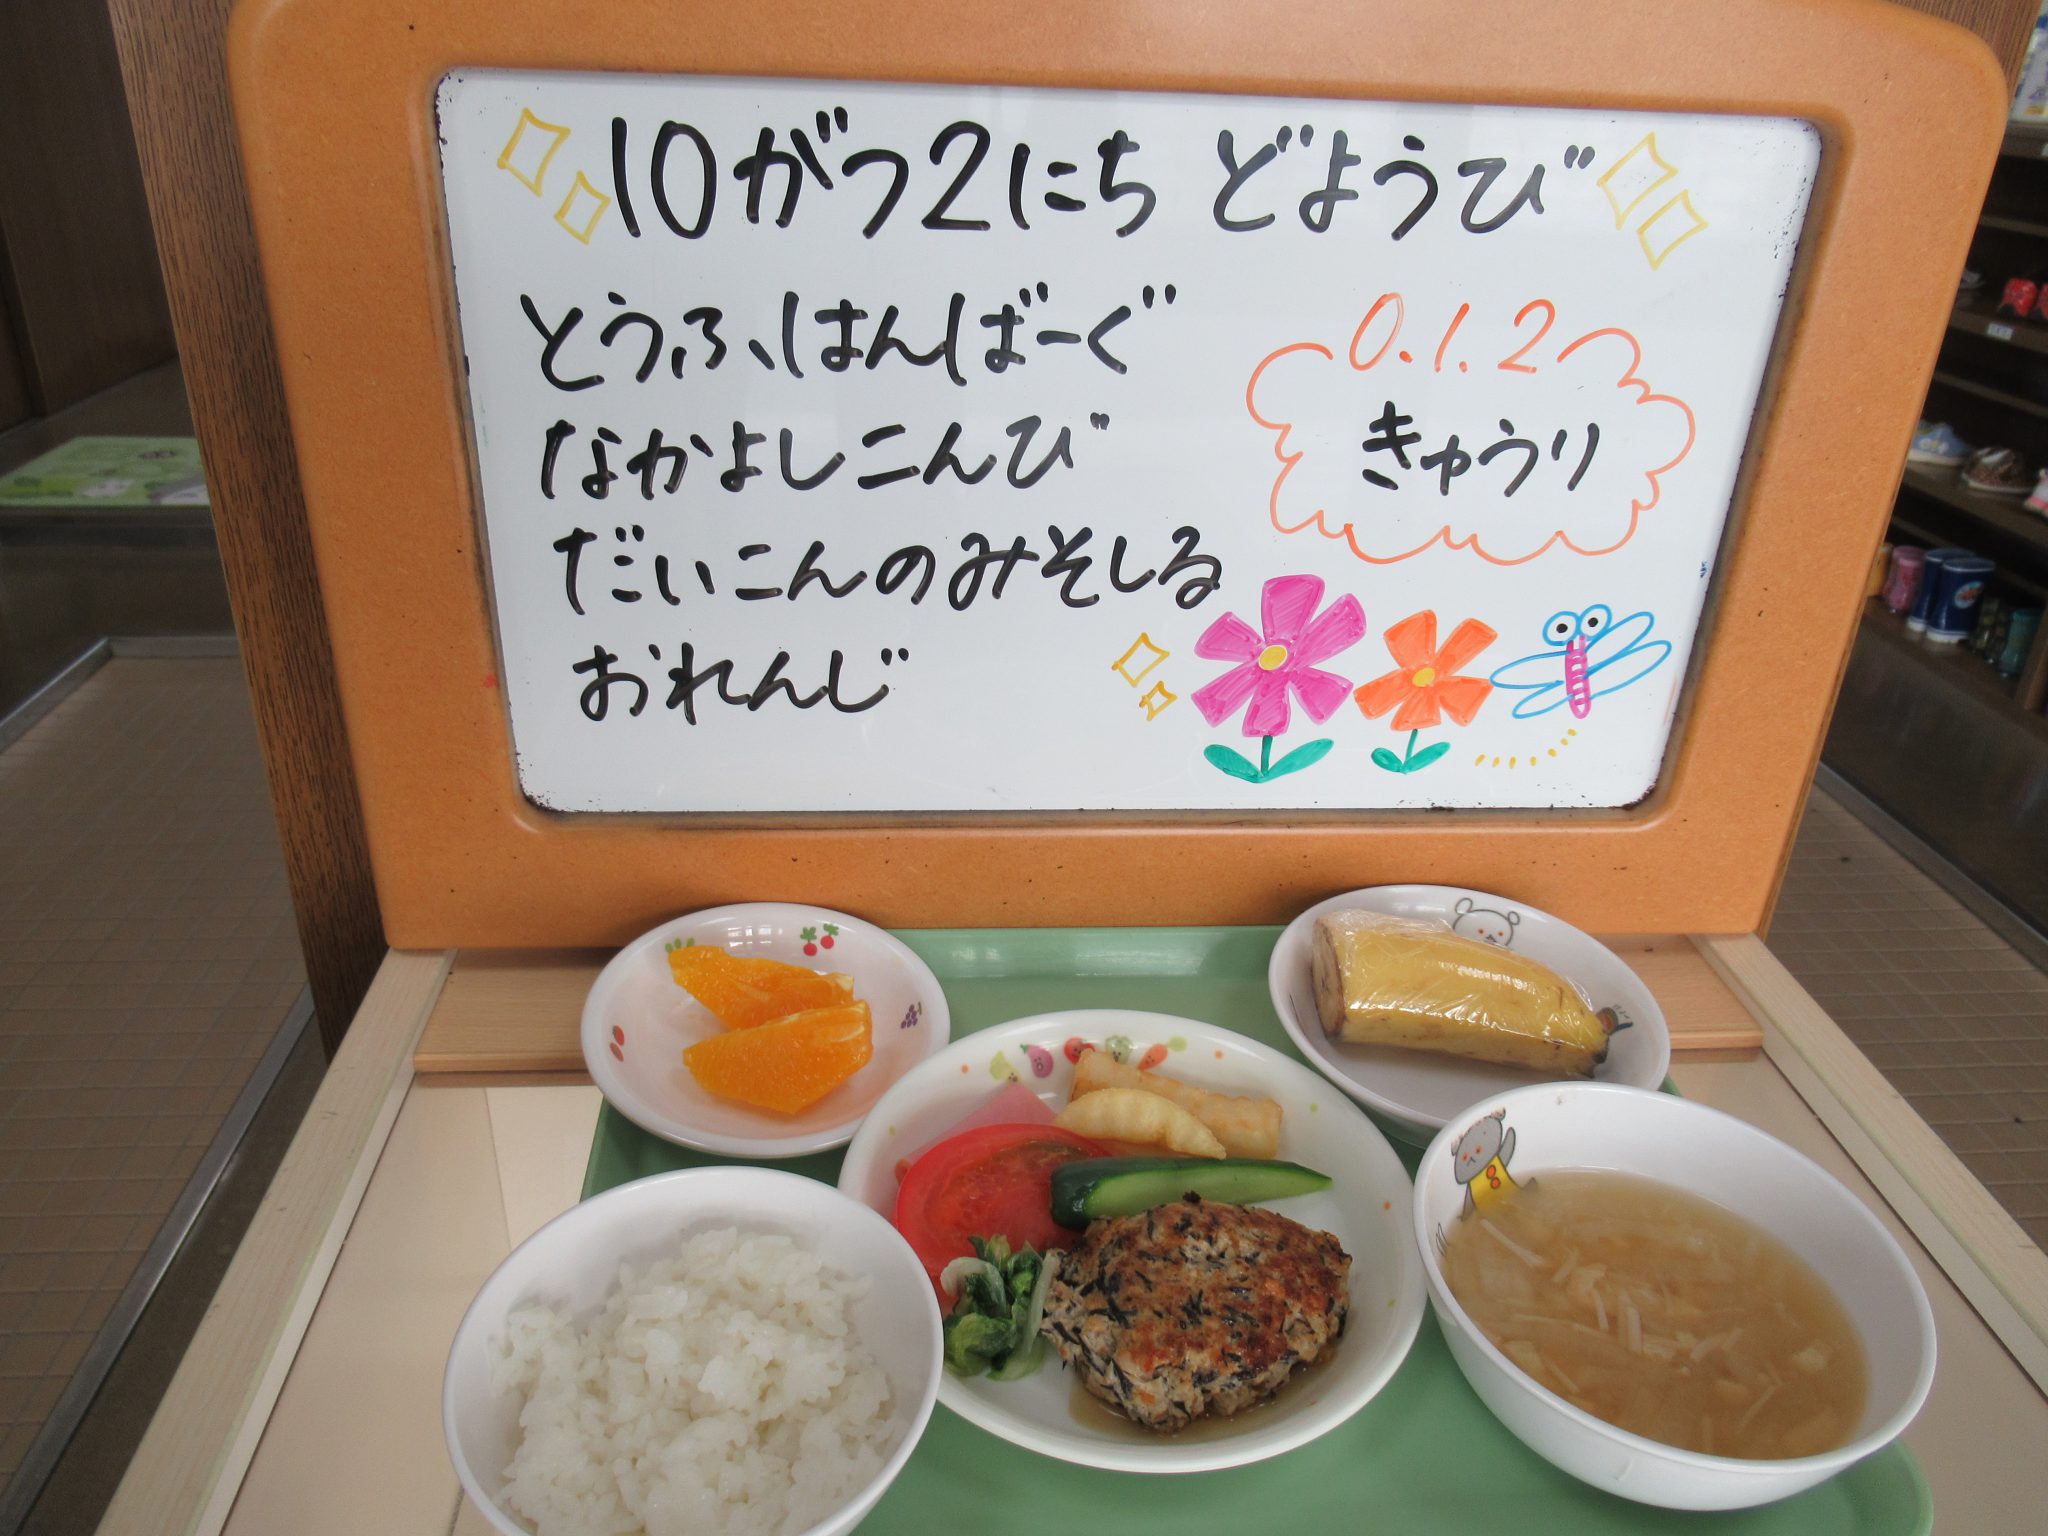 10がつ2にち どようび
とうふ、はんばーぐ
なかよしこんび
だいこんのみそしる
おれんじ
0.1.2
きゅうり